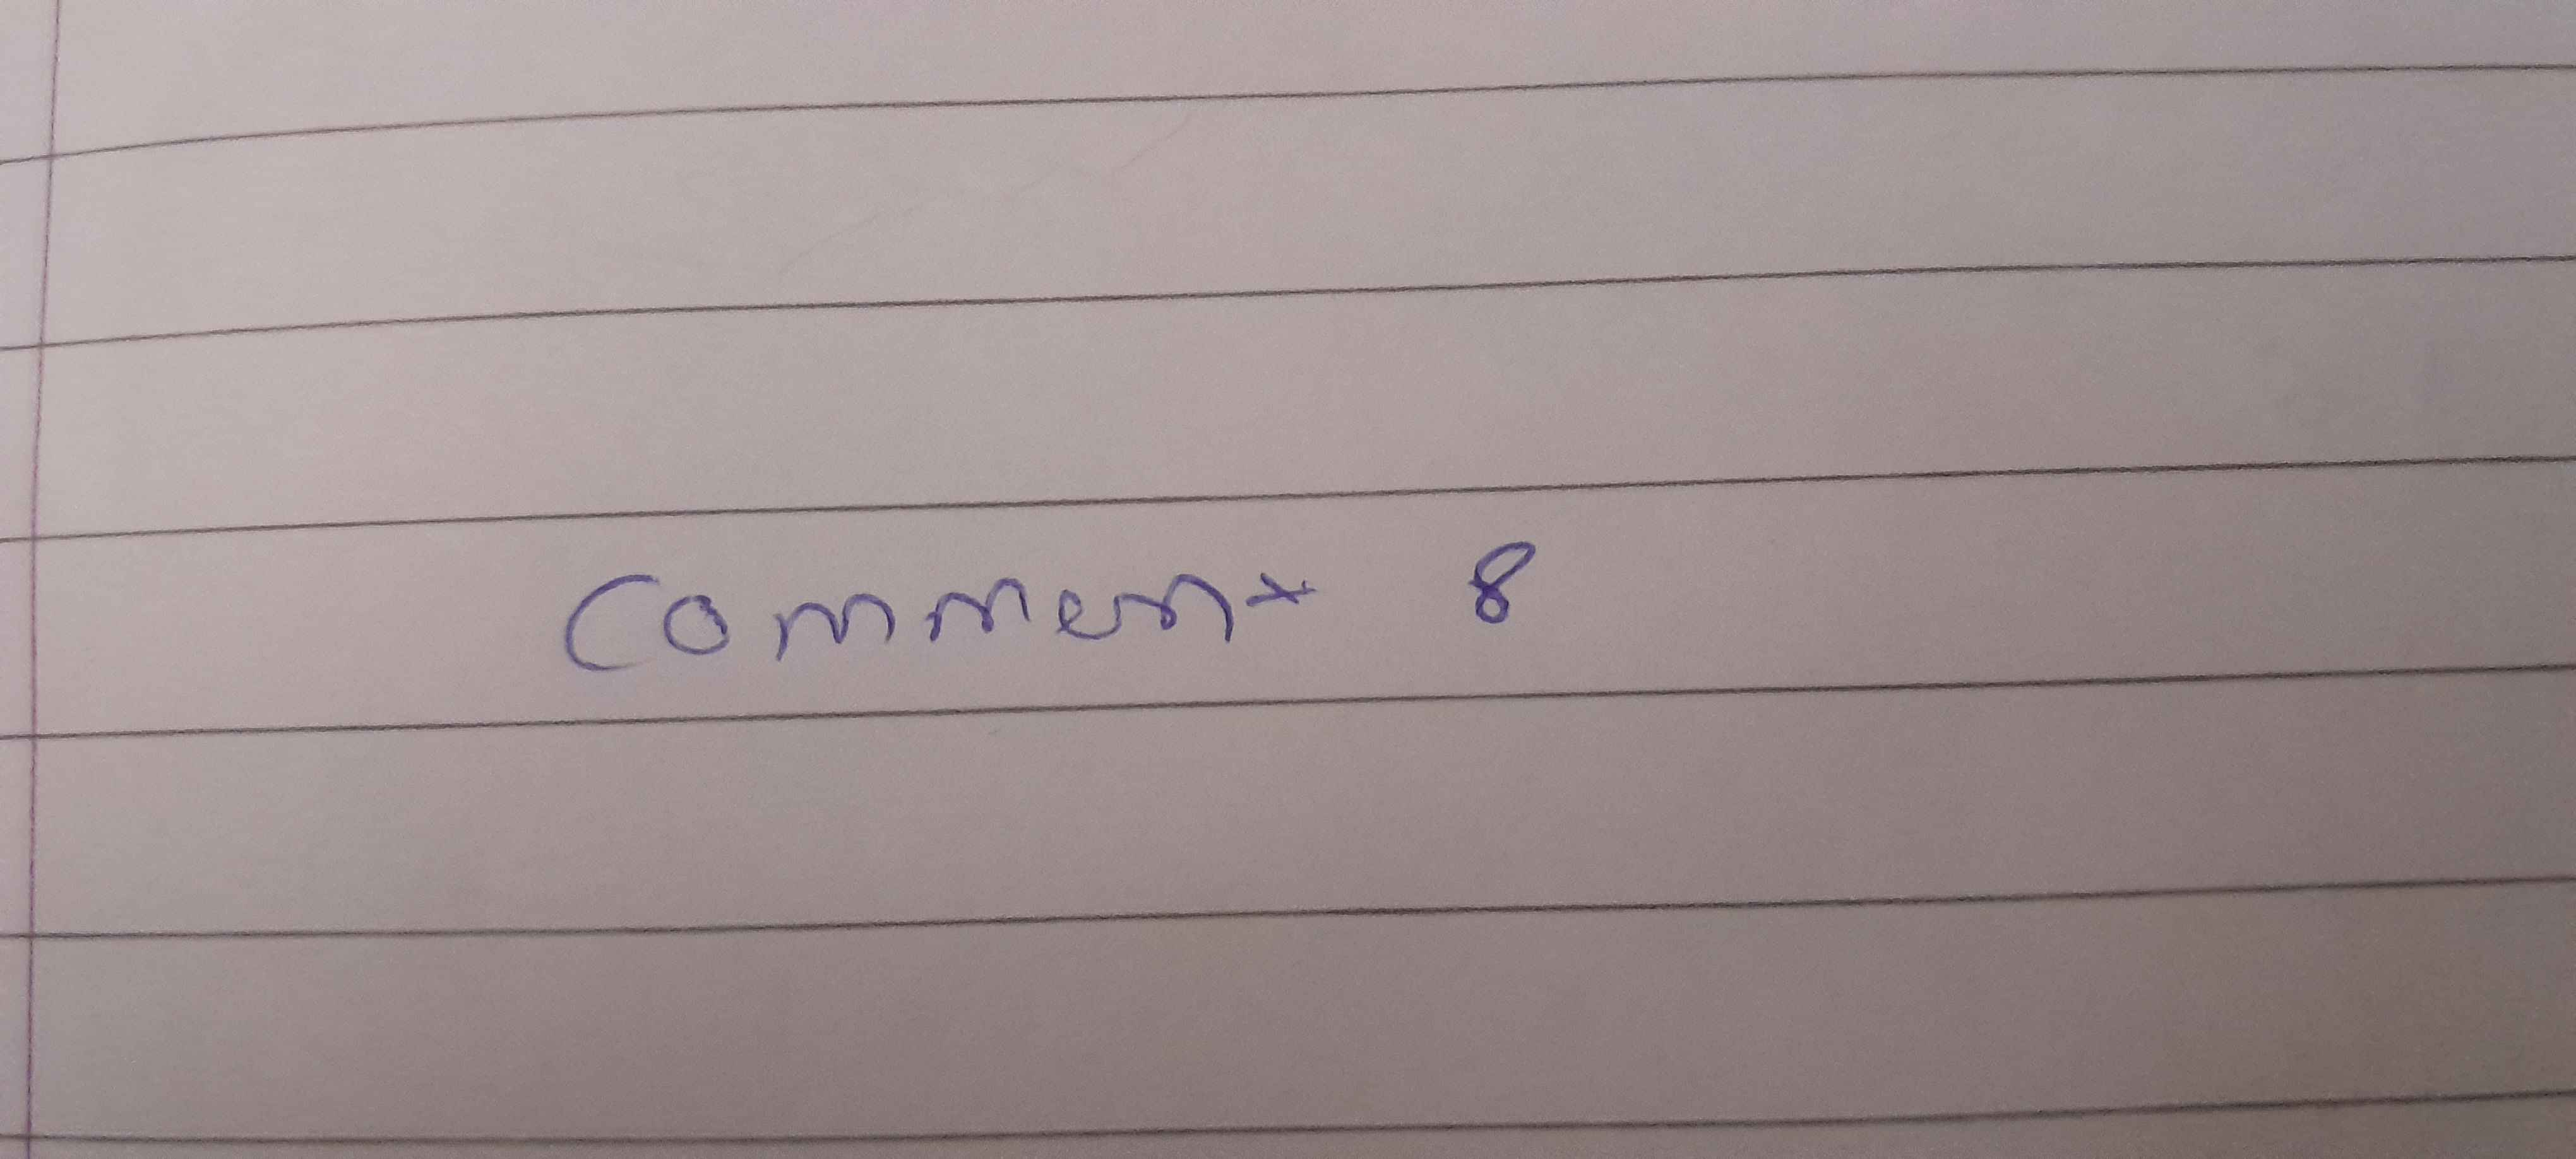 Comment 8